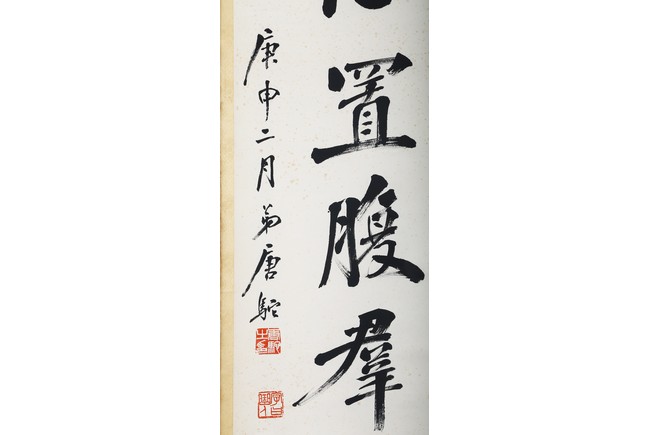 置腹羣
庚申二月弟唐駝